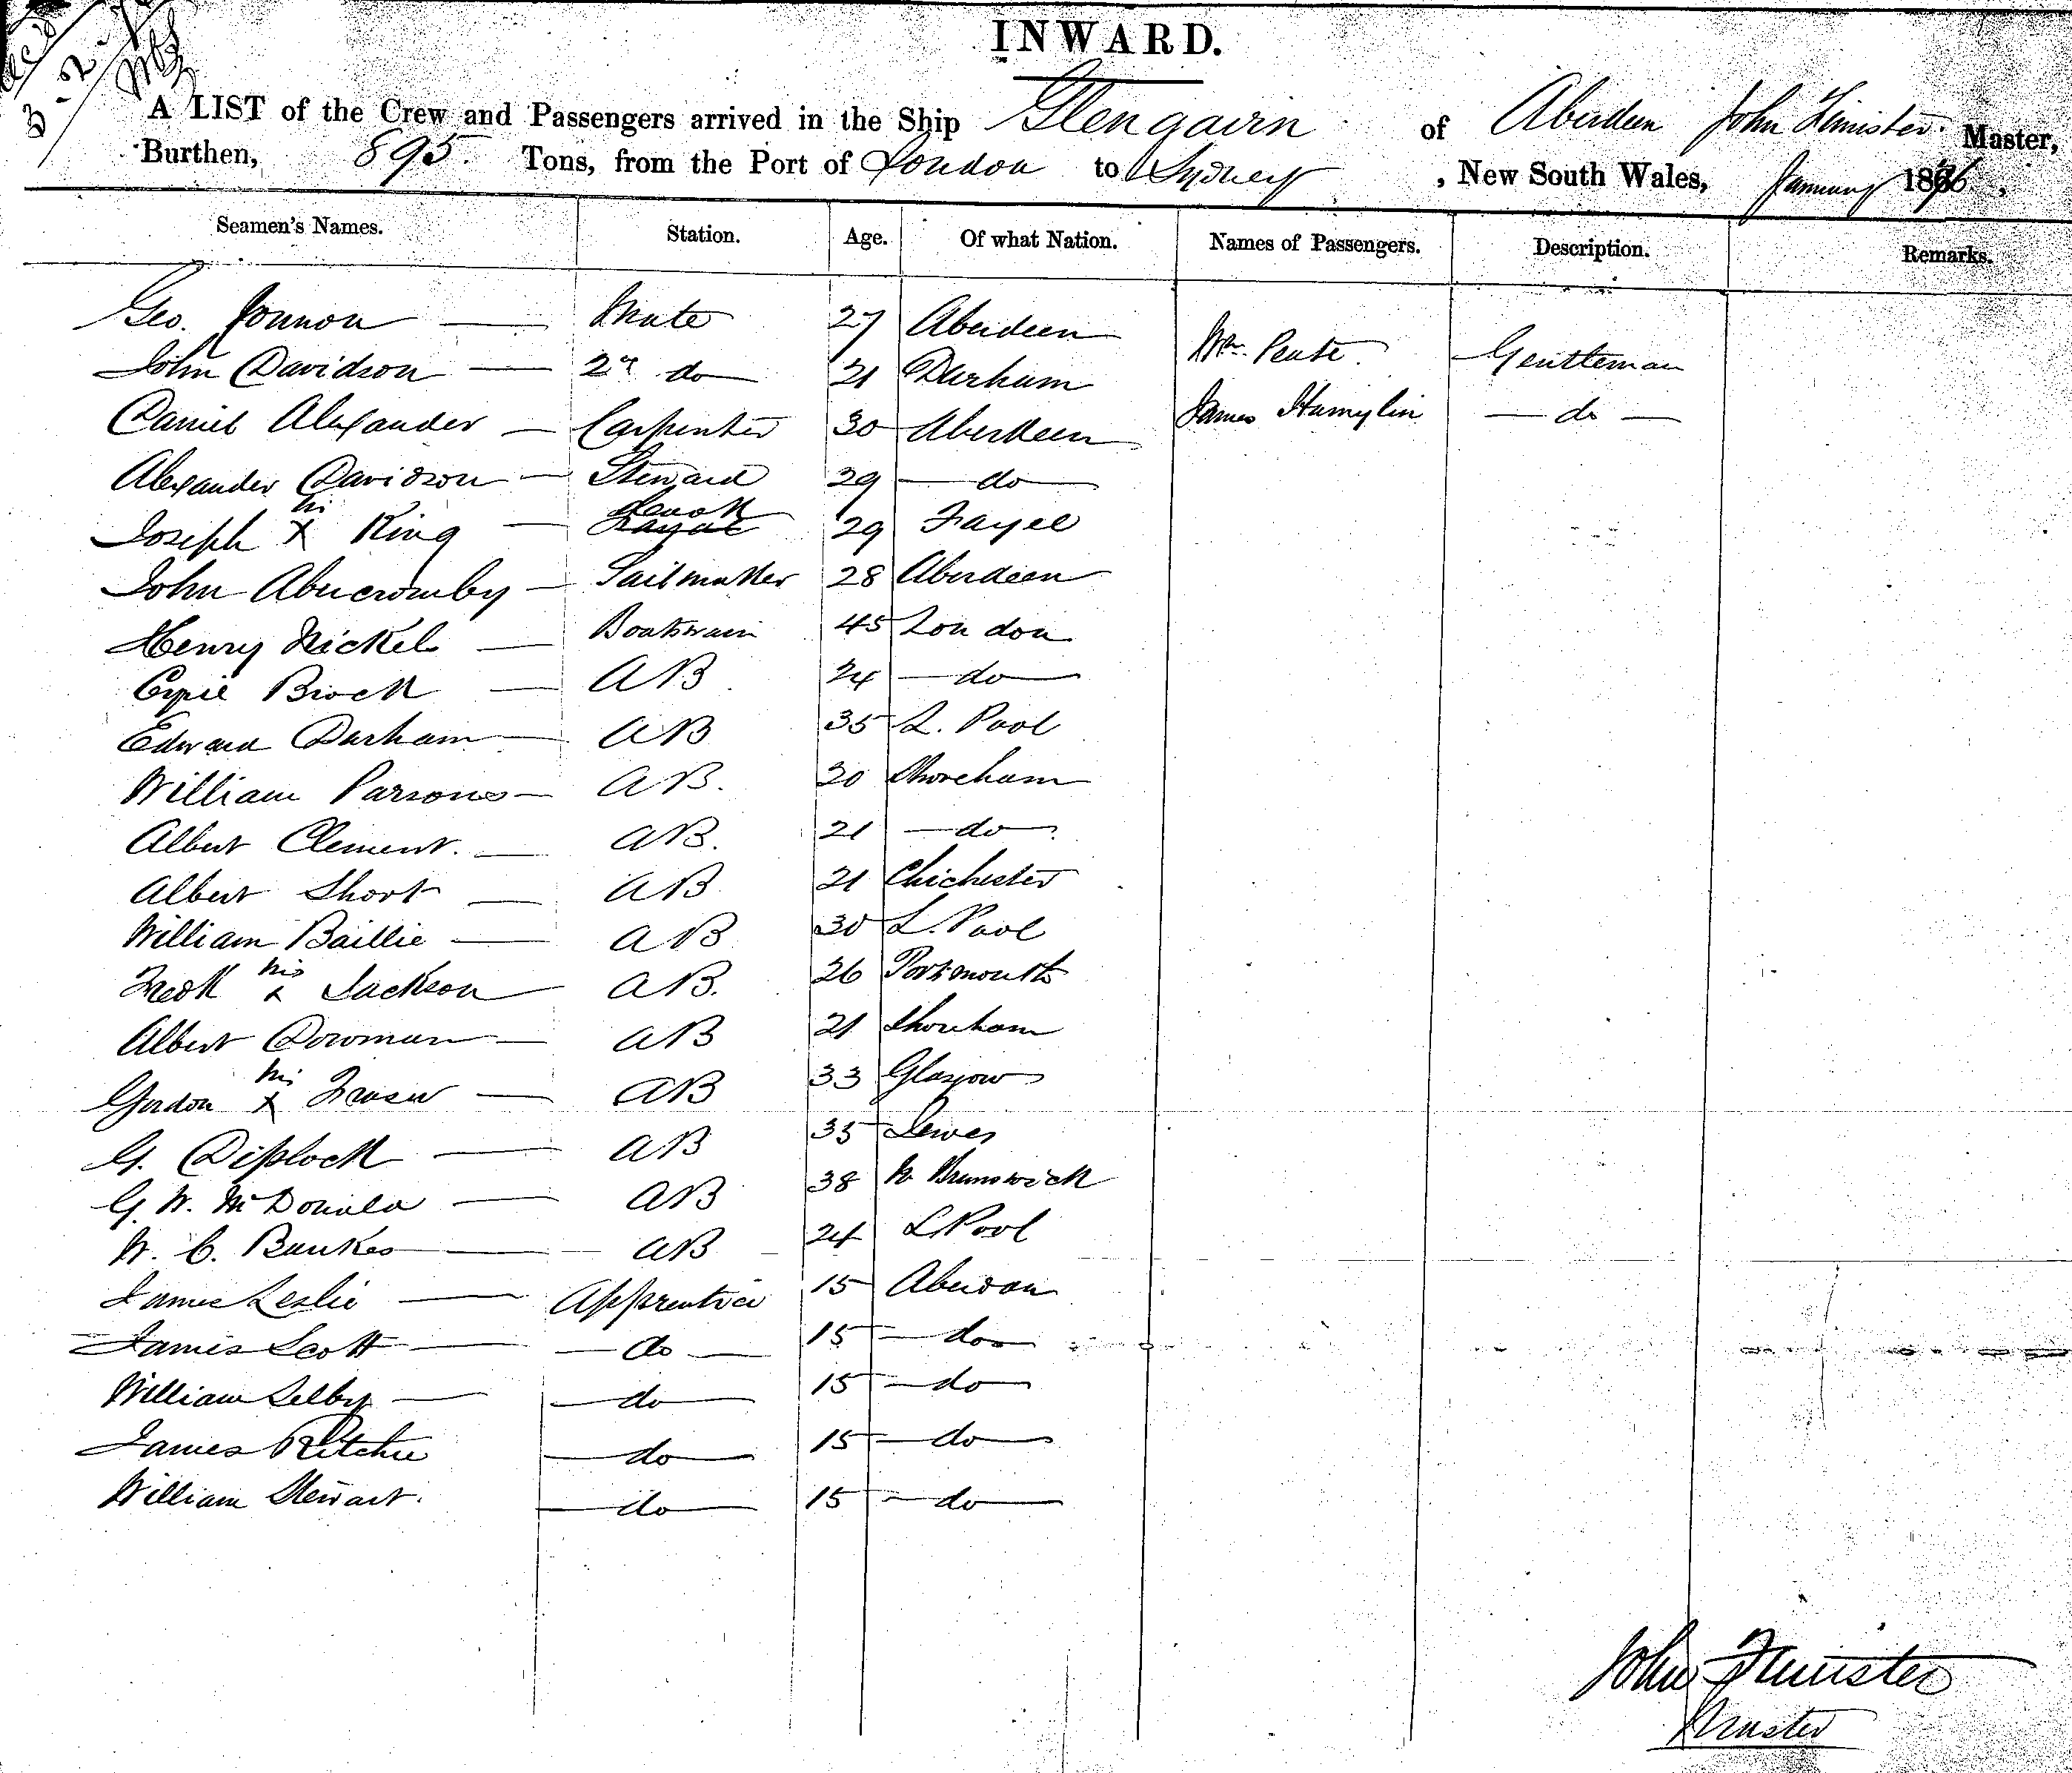 INWARD.
A LIST of the Crew and Passengers arrived in the Ship Glengairn of Aberdeen John Master,
Burthen, 895 Tons, from the Port of London to Sydney, New South Wales, January 1876.
Seamen's Names. Station. Age. Of what Nation. Names of Passengers. Description. Remarks.
Geo. Mate 27 Aberdeen
John Davidson 2nd do 21 Durham Wm. Gentleman
Daniel Alexander Carpenter 30 Aberdeen James do
Alexander Davidson Steward 29 do
Joseph his X King Cook 29 Fayel
John Abercromby Sailmaker 28 Aberdeen
Henry Nickel Boatswain 45 London
Brock AB 24 do
Edward Durham AB 35 L. Pool
William Parsons AB. 20 Shoreham
Albert Clement. AB. 21 do
Albert Short AB 21 Chichester
William Baillie AB 30 L. Pool
Fredk his x Jackson AB. 26 Portsmouth
Albert Dowman AB 21 Shoreham
Gordon his X Fraser AB 33 Glasgow
G. Diplock AB 35 Lewes
G. W. McDonald AB 38 N Brunswick
W. C. Bankes AB 24 L Pool
James Leslie Apprentice 15 Aberdeen
James Scott do 15 do
William Selby do 15 do
James Ritchie do 15 do
William Stewart. do 15 do
John
Master